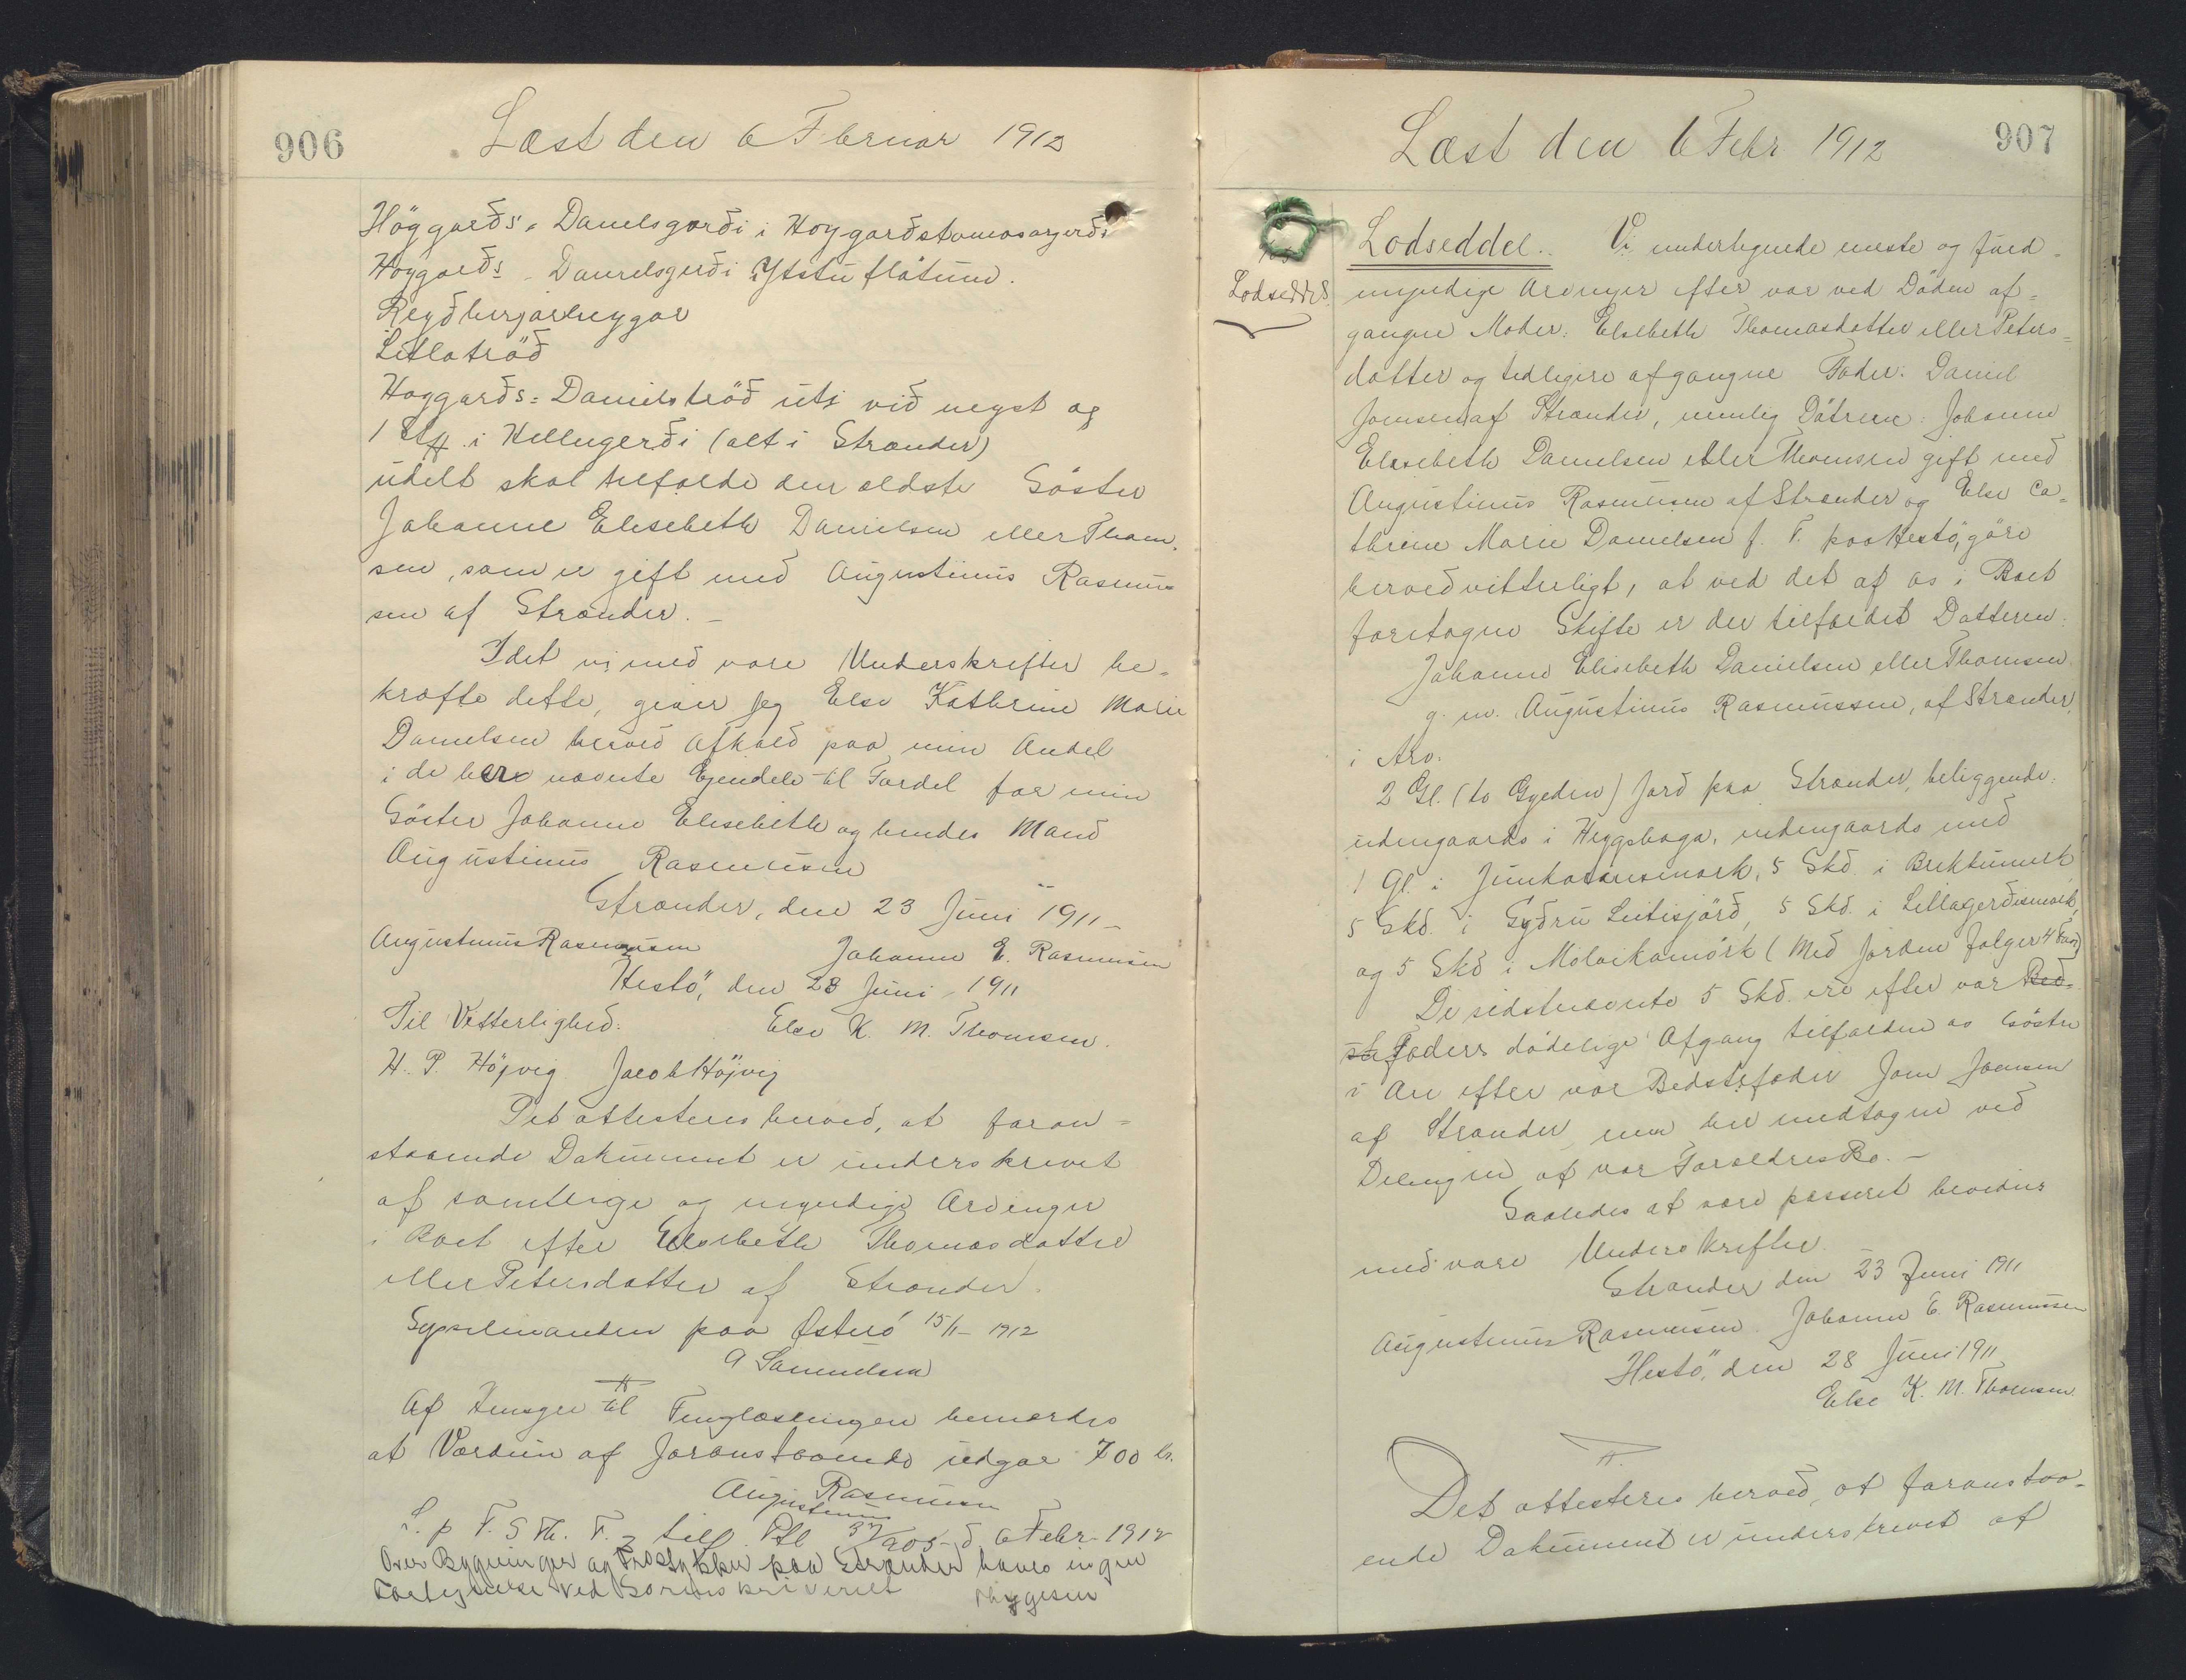 906
Læst den 6 Februar 1912
Höggarðs, Danielsgørði i Hoygarðstomasargerði
Höggarðs - Danielsgerði Ytstu flötum.
Reyðbergarheyggar
Litlatröð
Höggarðs = Danielströð úti við neyst og
1 St. i Hellugerði (alt i Strænder)
udelt skal tilfalde den ældste Söster
Johanne Elisebeth Danielsen eller Thom-
sen, som er gift med Augustinus Rasmus-
sen af Strænder. -
Idet vi med vore Underskrifter be-
kræfte dette, giver jeg Else Kathrine Marie
Danielsen herved Afkald paa min Andel
i de her nævnte Ejendele til Fordel for min
Söster Johanne Elisebeth og hendes Mand
Augustinus Rasmussen
Strænder, den 23 Juni 1911 -
Augustinus Rasmussen Johanne E. Rasmussen
Hestö, den 28 Juni 1911
Til Vitterlighed: Else K. M. Thomsen.
H. P. Höjvig Jacob Höjvig
Det attesteres herved, at foran=
staaende Dokument er underskrevet
af samtlige og myndige Arvinger
i Boet efter Elsebeth Thomasdatter
eller Petersdatter af Strænder.
Sysselmanden paa Østerö 15/1- 1912
A Samuelsen
Af Hensyn til Tinglæsningen bemærkes
at Værdien af foranstaaende udgør 700 kr.
Augustinus Rasmussen
L. p F. S Th. F. d. 6 Febr. 1912
Over Bygninger og Trøstykker paa Strænder haves ingen
ved Sorenskriveriet
907
Læst den 6 Febr 1912
Lodseddel
Lodseddel. Vi undertegnede eneste og fuld=
myndige Arvinger efter vor ved Döden af=
gangne Moder: Elsebeth Thomasdatter eller Peters=
datter og tidligere afgangne Fader: Daniel
Joensen af Strænder, nemlig Dötrene: Johanne
Elisebeth Danielsen eller Thomsen gift med
Augustinus Rasmussen af Strænder og Else Ca=
thrine Marie Danielsen f. T. paa Hestö, göre
herved vitterligt, at ved det af os i Boet
foretagne Skifte er der tilfaldet Datteren:
Johanne Elisebeth Danielsen eller Thomsen
g. m. Augustinus Rasmussen, af Strænder,
i Arv:
2 Gl. (to Gylden) Jord paa Strænder, beliggende:
udengaards i Heygshaga, indengaards med
1 Gl. i Junkarismörk, 5 Skd. i
5 Skd. i Syðru Leitisjörð, 5 Skd. i Lillagerðismörk,
og 5 Skd i Molvikamörk (Med Jorden følger 4 Faar)
De sidstnævnte 5 Skd. ere efter vor Bed=
ste Faders dödelige Afgang tilfalden os Söstre
i Arv efter vor Bedstefader Joen Joensen
af Strænder, men her medtagne ved
Delingen af vor Forældres Bo. -
Saaledes at være passeret bevidnes
med vore Underskrifter.
Strænder den 23 Juni 1911
Augustinus Rasmussen. Johanne E. Rasmussen
Hestö, den 28 Juni 1911
Else K. M. Thomsen.
Det attesteres herved, at foranstaa=
ende Dokument er underskrevet af